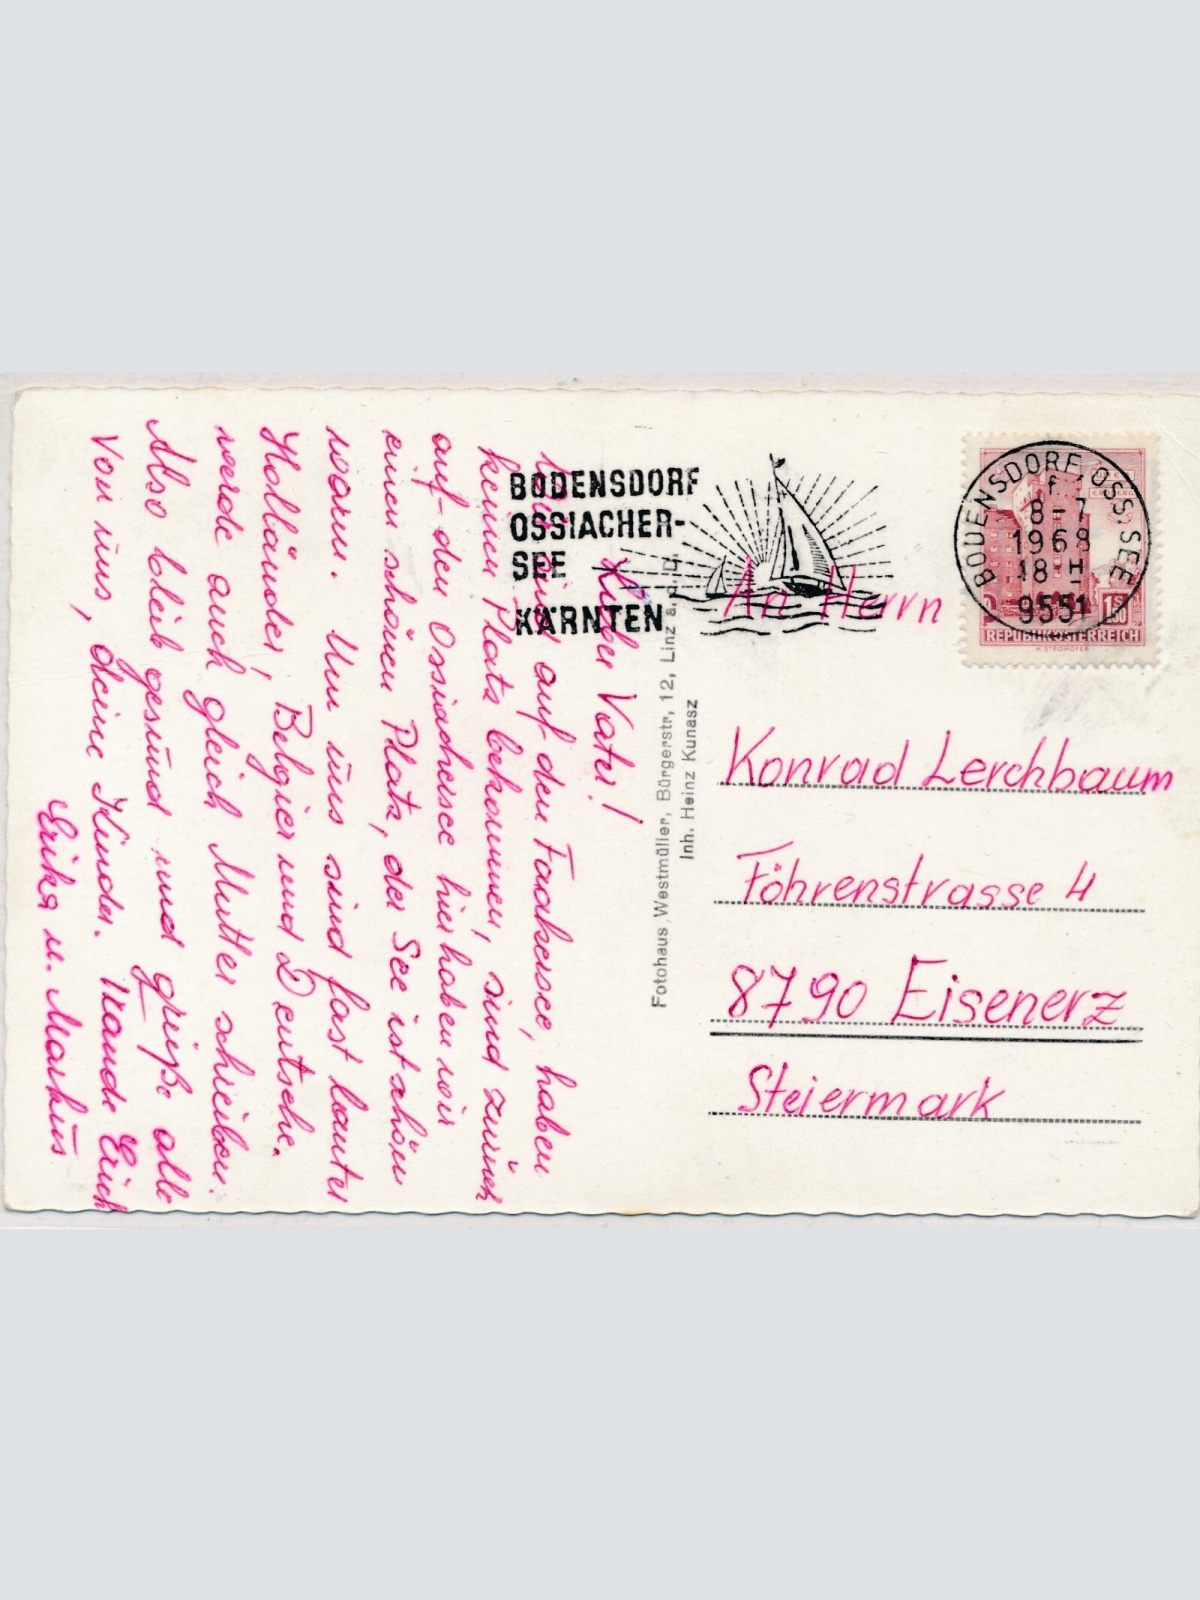 Lieber Vater!
Wir sind auf den Faakersee, haben
keinen Platz bekommen, sind zurück
auf den Ossiachersee hier haben wir
einen schönen Platz, der See ist schön
warm. Um uns sind fast lauter
Holländer, Belgier und Deutsche.
werde auch gleich Mutter schreiben.
Also bleib gesund und grüße alle
Von uns, deine Kinder. Erich
Erika u. Markus
BODENSDORF
OSSIACHER-
SEE
KÄRNTEN
Fotohaus Westmüller, Bürgerstr, 12, Linz a. d. D.
Inh. Heinz Kunasz
BODENSDORF, OSS. SEE
f
8-7
1968
18-H
9551
1.50
REPUBLIK ÖSTERREICH
H. STROHOFER
An Herrn
Konrad Lerchbaum
Föhrenstrasse 4
8790 Eisenerz
Steiermark